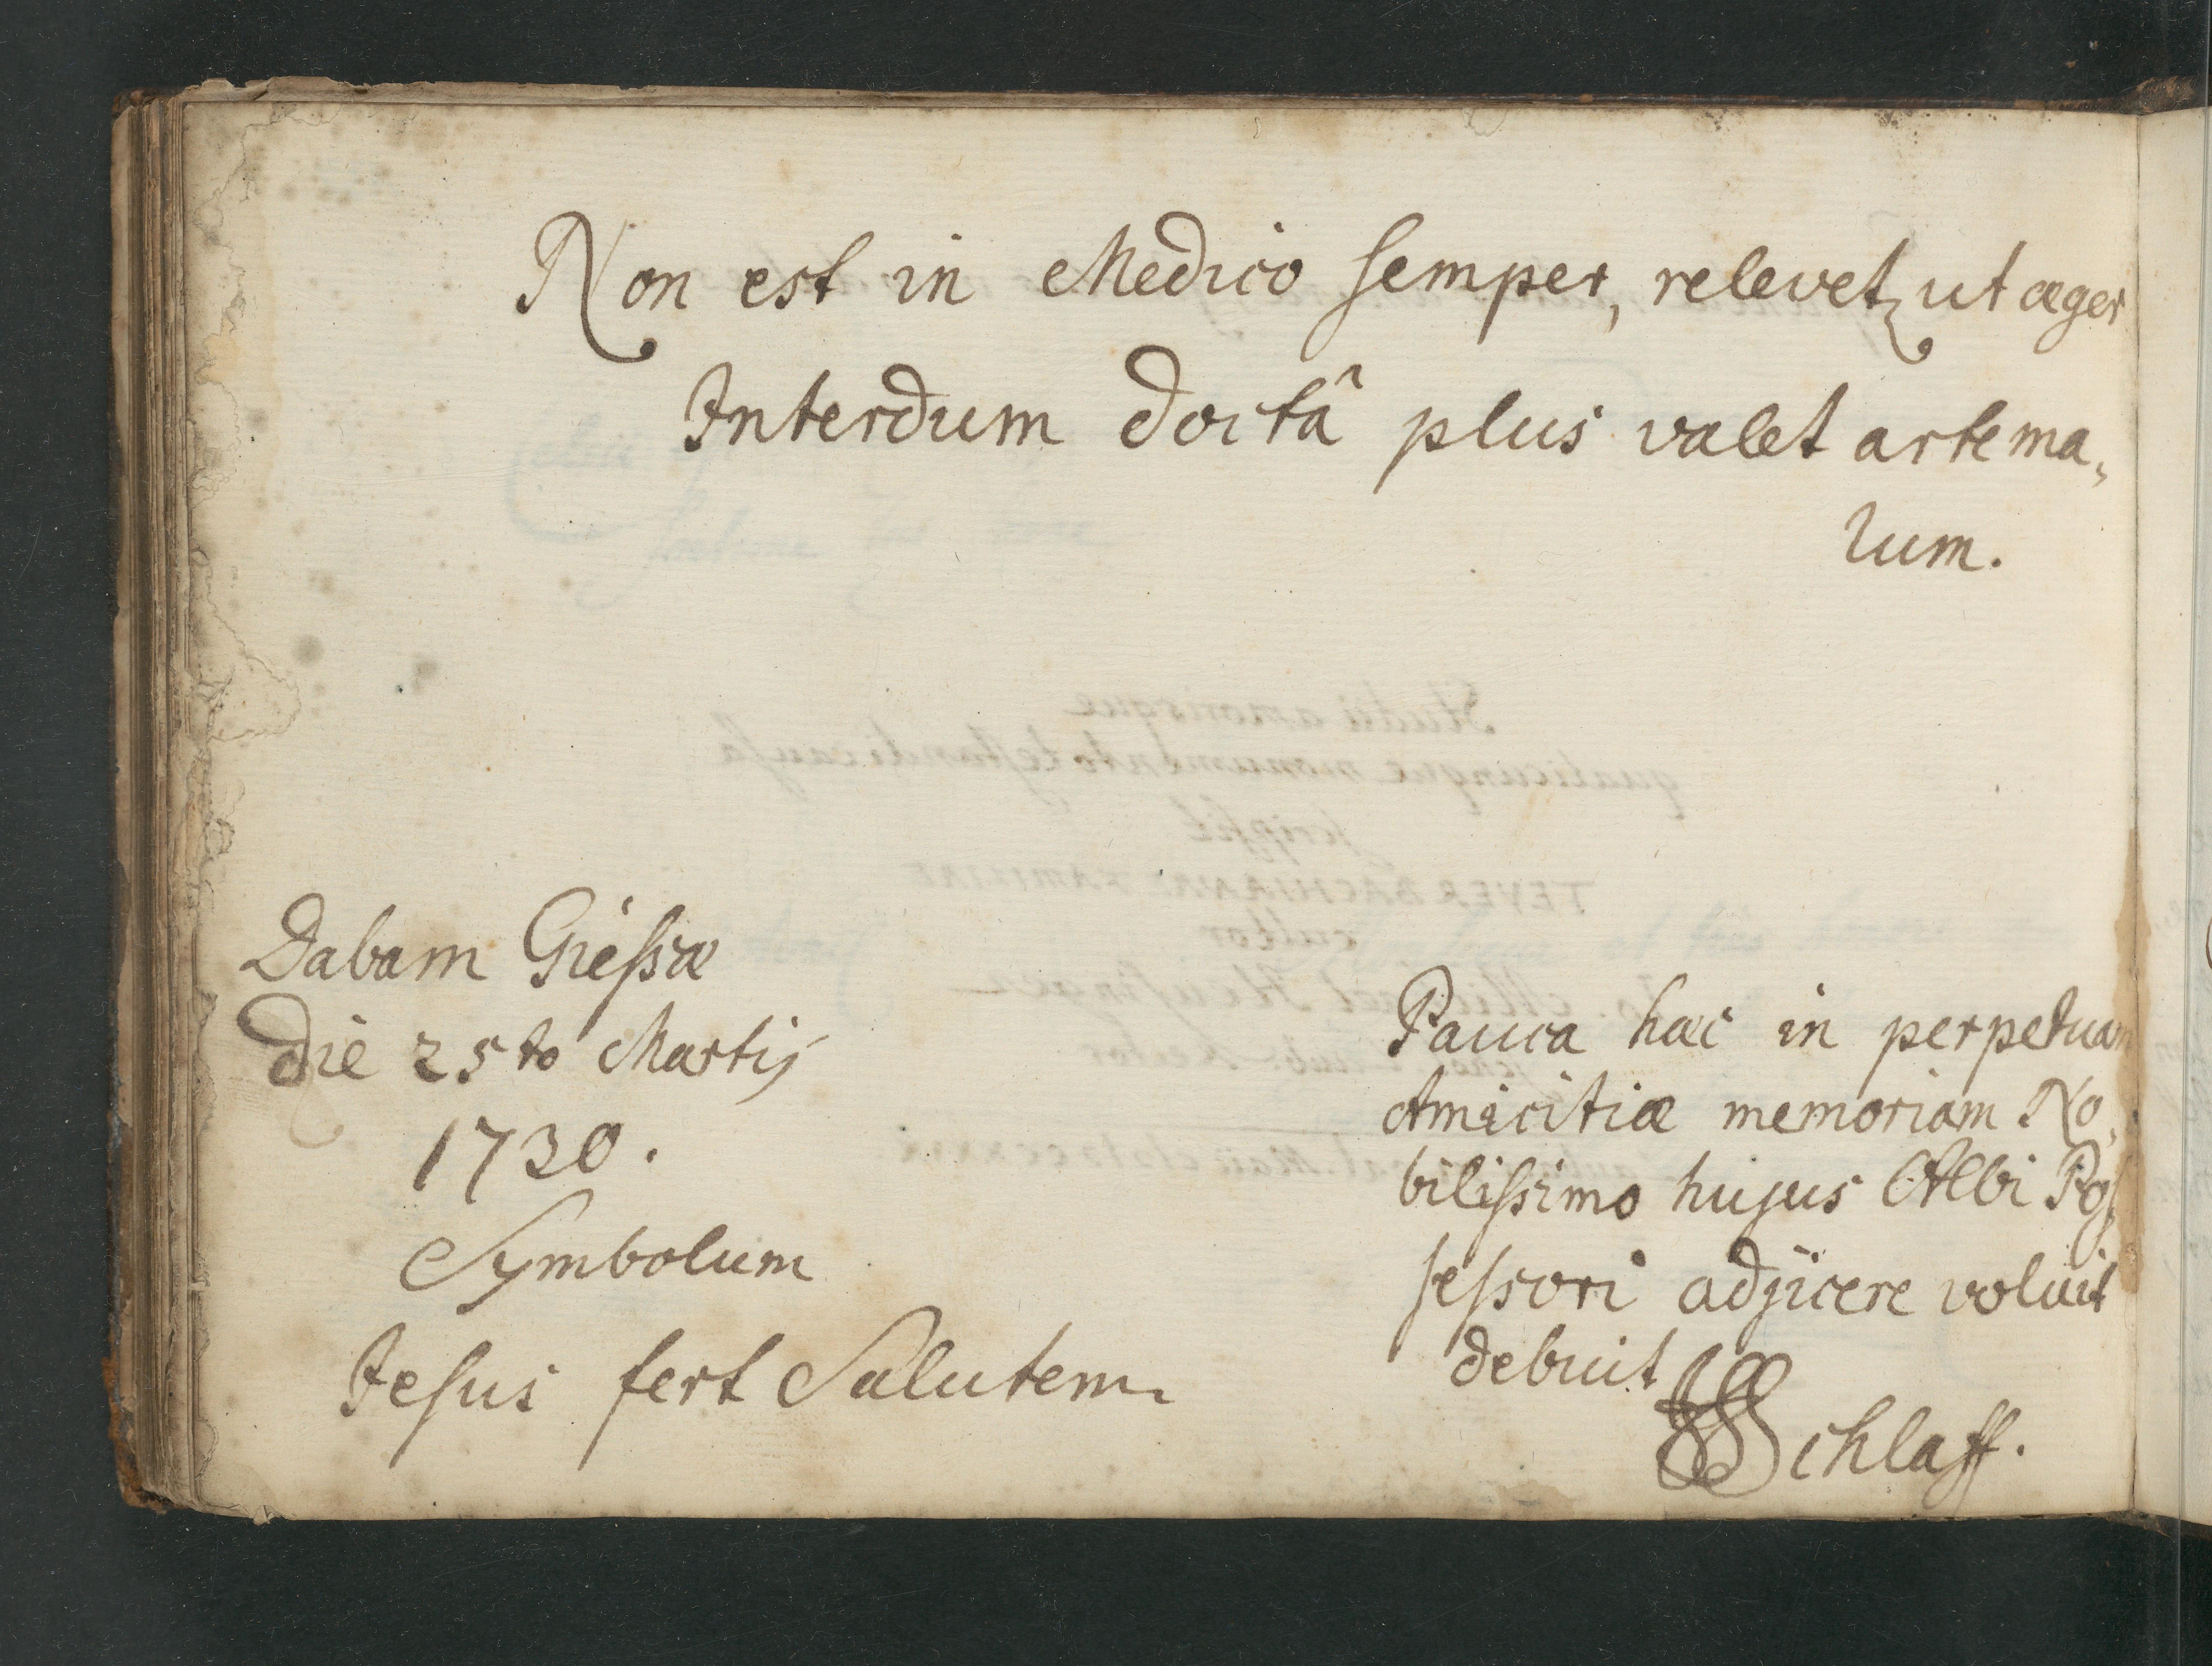 Non est in Medico semper, relevetur ut aeger
Interdum doctâ plus valet arte ma,
lum.
Dabam Giessae
die 25to Martij
1730.
Symbolum
Jesus fert Salutem
Pauca haec in perpetuam
Amicitiae memoriam No,
bilissimo hujus Albi Pos,
sessori adjicere voluit
debuit
Schlaff.